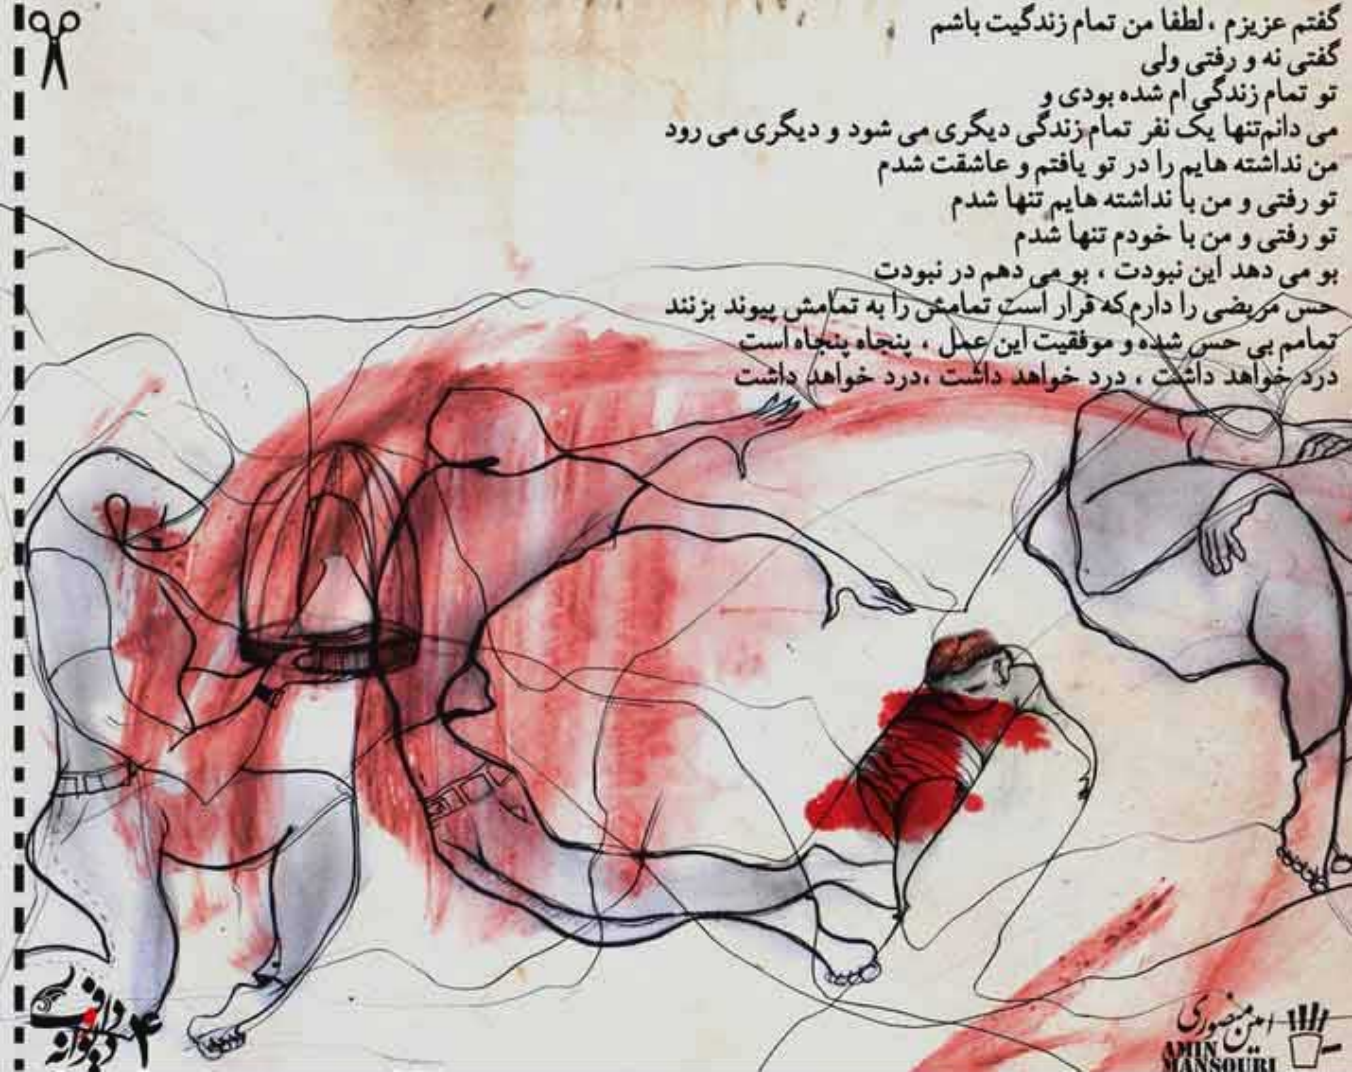 گفتم عزیزم ، لطفا من تمام زندگیت باشم
گفتی نه و رفتی ولی
تو تمام زندگی ام شده بودی و
می دانم تنها یک نفر تمام زندگی دیگری می شود و دیگری می رود
من نداشته هایم را در تو یافتم و عاشقت شدم
تو رفتی و من با نداشته هایم تنها شدم
تو رفتی و من با خودم تنها شدم
بو می دهد این نبودت ، بو می دهم در نبودت
حس مریضی را دارم که قرار است تمامش را به تمامش پیوند بزنند
تمامم بی حس شده و موفقیت این عمل ، پنجاه پنجاه است
درد خواهد داشت ، درد خواهد داشت ،درد خواهد داشت
دیوانه ۴
امین منصوری
AMIN
MANSOURI